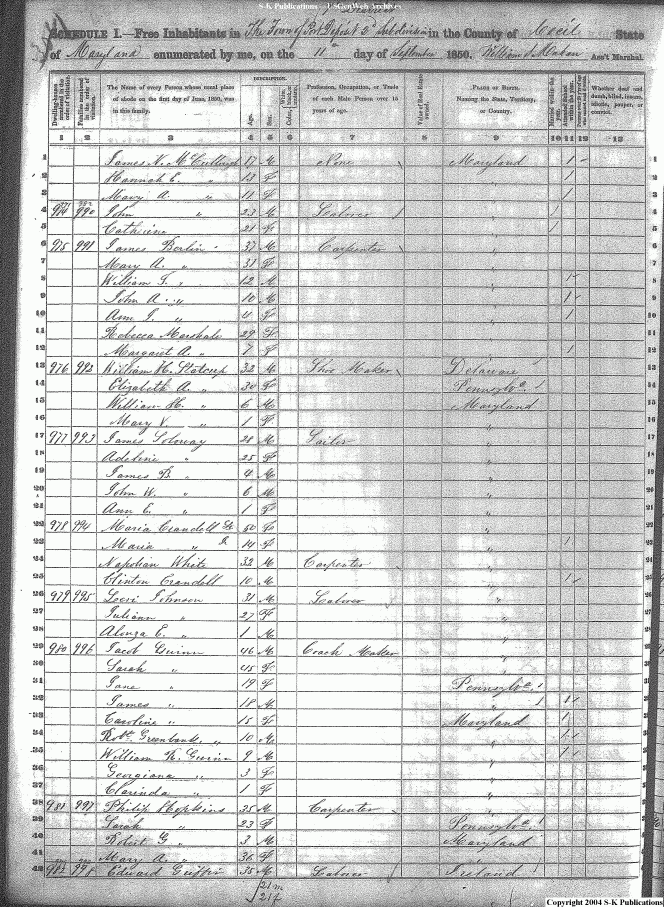 S-K Publications - USGenWeb Archives
SCHEDULE I.—Free Inhabitants in The Town of Port Deposit 3d Subdivision in the County of Cecil State
of Maryland enumerated by me, on the 11th day of September 1850. William S. Ass't Marshal.
Dwelling-houses numbered in the order of visitation.
Families numbered in the order of visitation.
The Name of every Person whose usual place of abode on the first day of June, 1850, was in this family.
DESCRIPTION.
Age.
Sex.
Color, White, black, or mulatto.
Profession, Occupation, or Trade of each Male Person over 15 years of age.
Value of Real Estate owned.
PLACE OF BIRTH.
Naming the State, Territory, or Country.
Married within the year.
Attended School within the year.
Whether deaf and dumb, blind, insane, idiotic, pauper, or convict.
1 2 3 4 5 6 7 8 9 10 11 12 13
1 James N. McCullough 17 M None Maryland 1
2 Hannah E. " 13 F " 1
3 Mary A. " 11 F " 1
4 990 John " 23 M Laborer " 1
5 Catherine 21 F " 1
6 975 991 James Berlin 37 M Carpenter "
7 Mary A. " 31 F "
8 William T. " 12 M " 1
9 John A. " 10 M " 1
10 Ann " 4 F " 1
11 Rebecca Marshall 29 F "
12 Margaret A. " 7 F " 1
13 976 992 William H. Statcup 32 M Shoe Maker Delaware
14 Elizabeth A. " 30 F Pennsylva
15 William H. " 6 M Maryland
16 Mary V. " 1 F "
17 977 993 James Soloway 28 M Sailor "
18 Adeline " 25 F "
19 James B. " 4 M "
20 John W. " 6 M "
21 Ann E. " 1 F "
22 978 994 Maria Crandell 50 F "
23 Maria " 14 F " 1
24 Napolian White 32 M Carpenter "
25 Clinton Crandell 10 M " 1
26 979 995 Levi Johnson 31 M Laborer "
27 Juliann " 27 F "
28 Alonza E. " 1 M "
29 980 996 Jacob Guinn 46 M Coach Maker "
30 Sarah " 45 F "
31 Jane " 19 F Pennsylva
32 James " 18 M " 1
33 Caroline " 15 F Maryland 1
34 Robt. Greenbank " 10 M " 1
35 William R. Guinn 9 M " 1
36 Georgiana " 3 F "
37 Clarinda " 1 F "
38 981 997 Philip Hopkins 35 M Carpenter "
39 Sarah " 23 F Pennsylva
40 Robert G " 3 M Maryland
41 Mary A. " 36 F "
42 982 998 Edward 35 M Laborer Ireland
21 m
21 f
Copyright 2004 S-K Publications